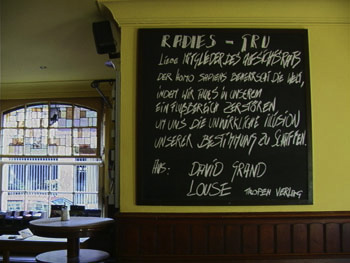 RADIES - GRU
LIEBE MITGLIEDER DES AUFSICHTSRATS
DER HOMO SAPIENS BEHERRSCHT DIE WELT,
INDEM WIR ALLES IN UNSEREM
EINFLUßBEREICH ZERSTÖREN,
UM UNS DIE UNWIRKLICHE ILLUSION
UNSERER BESTIMMUNG ZU SCHAFFEN.
AUS: DAVID GRAND
LOUSE TROPEN VERLAG